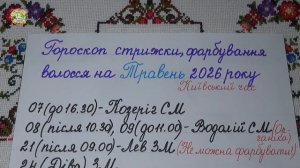 Гороскоп стрижки, фарбування
волосся на Травень 2026 року
Київський час
07 (до 16.30) - Козеріг СМ
08 (після 10.30), 09 (до 11.0) - Водолій СМ (Ор-
ганіка)
21 (після 09.0) - Лев ЗМ (Не можна фарбувати!)
24 (Діва) ЗМ